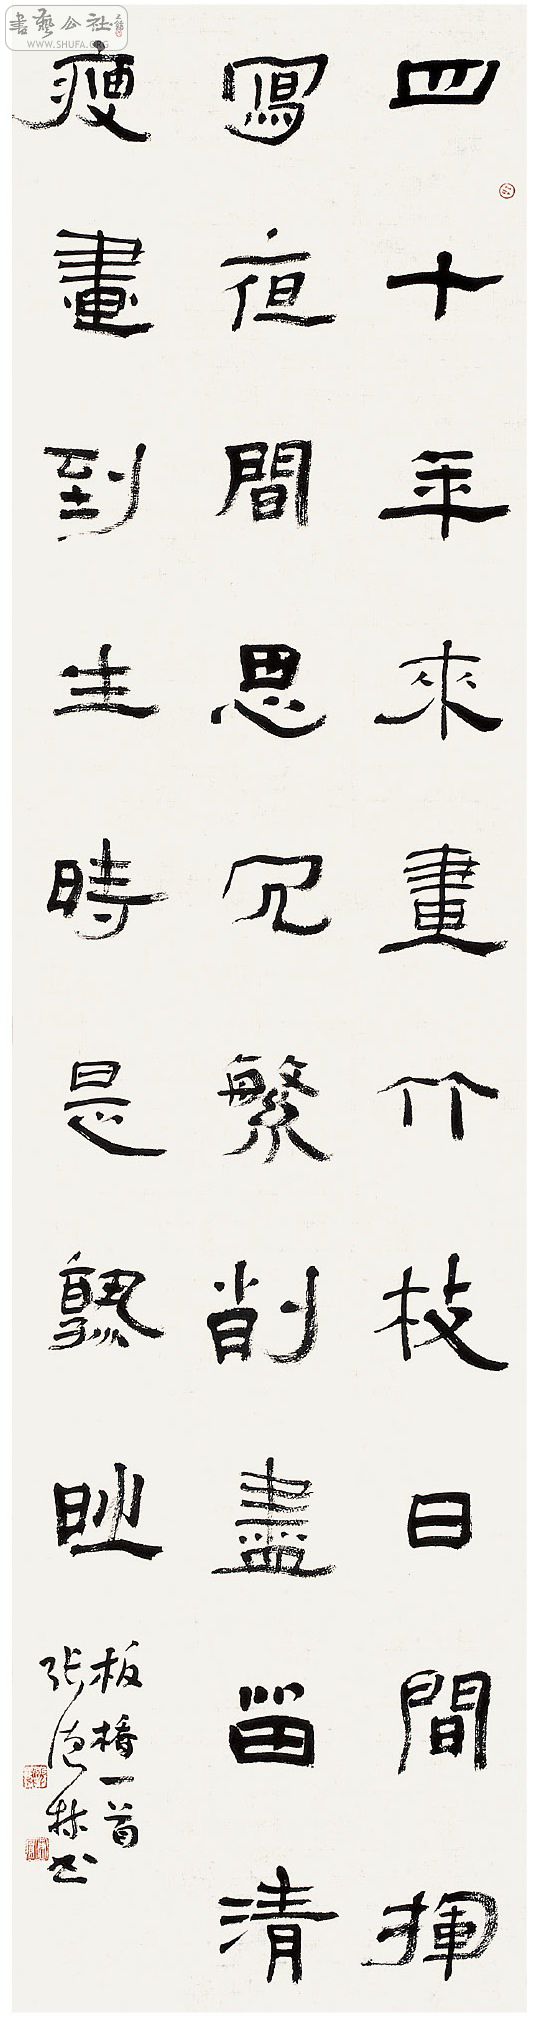 書藝公社
WWW.SHUFA.ORG
四十年來畫竹枝日間揮
寫夜間思冗繁削盡畱清
瘦畫到生時是熟時
板橋一首
張德林书